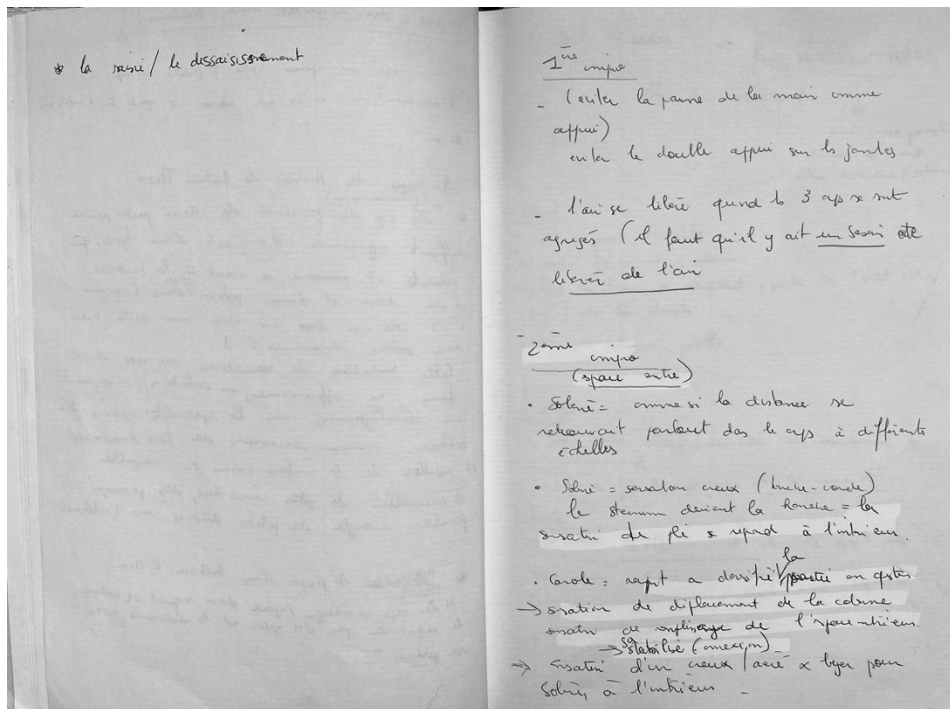 * la saisie / le dessaisissement
1ère impro
- (enlever la paume de la main comme
appui)
enlever le double appui sur les jambes
- l'air se libère quand les 3 corps se sont
agrégés (il faut qu'il y ait un besoin
libérer de l'air
- 2ème impro
(espace entre)
• Solène = comme si la distance se
retrouvait partout dans le corps à différentes
échelles
• Solène = sensation creux (hanche-coude)
le sternum devient la hanche = la
sensation de pli se répand à l'intérieur.
• Carole = a densifié la partie
→ sensation de déplacement de la colonne
sensation de remplissage de l'espace intérieur.
→ stabilité (connexion)
→ sensation d'un creux / pour
Solène à l'intérieur -